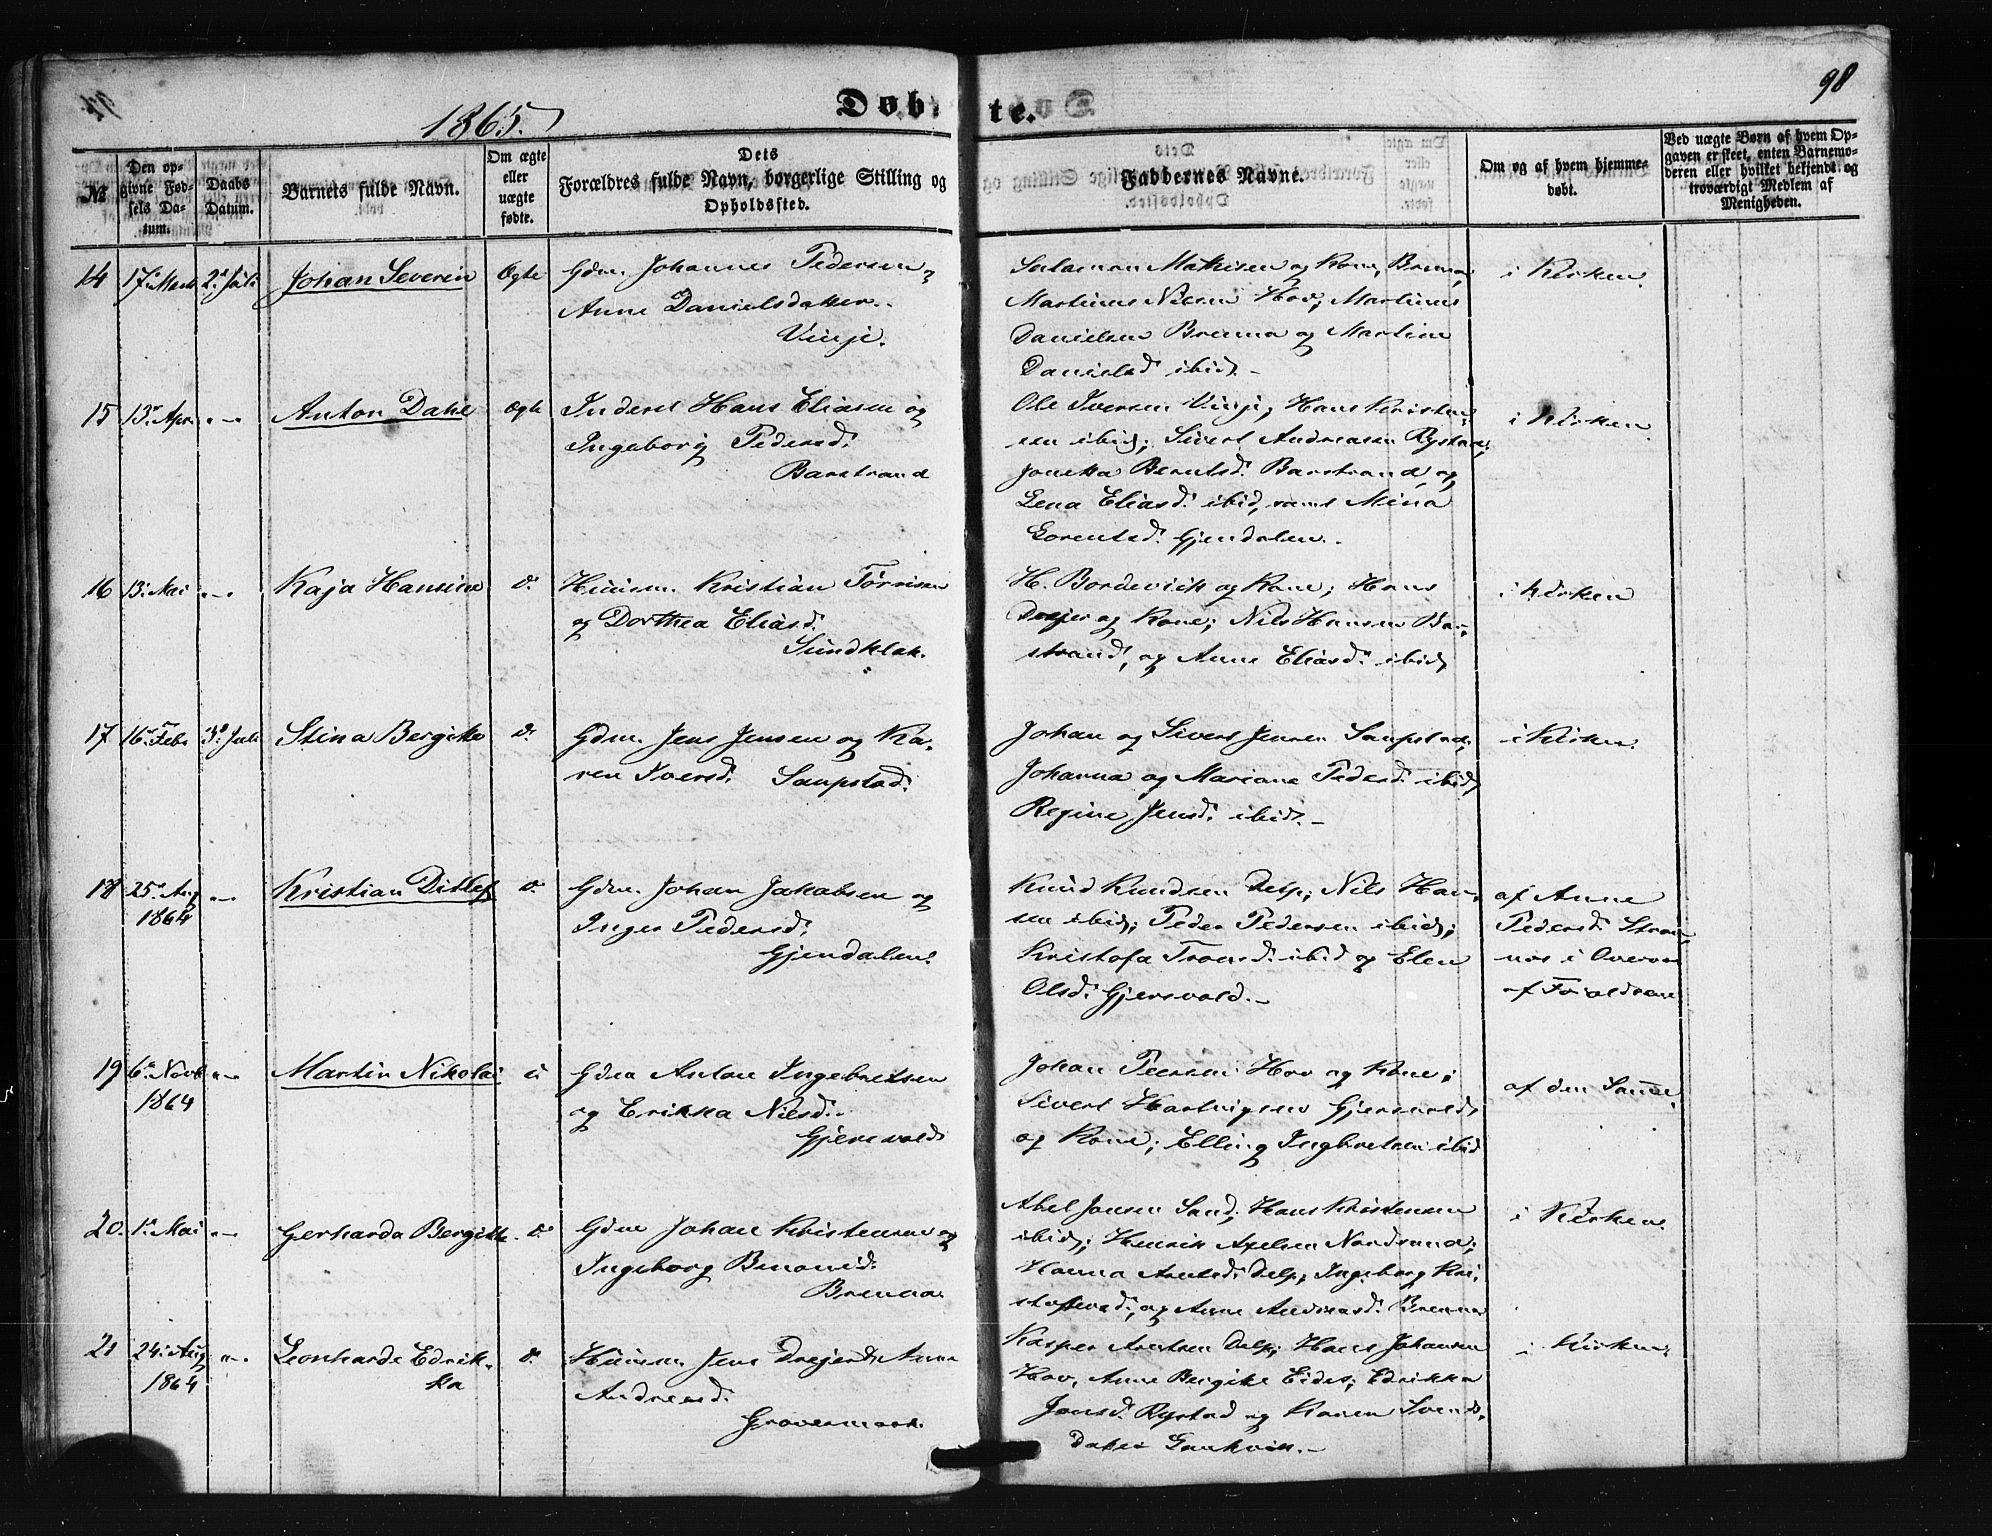 98
1865.
Døbte.
№
Den opgivne Fødsels Datum.
Daabs Datum.
Barnets fulde Navn.
Om ægte eller uægte fødte.
Dets Forældres fulde Navn, borgerlige Stilling og Opholdssted.
Faddernes Navne.
Om og af hvem hjemmedøbt.
Ved uægte Børn af hvem Opgaven er skeet, enten Barnemoderen eller hvilket bekjendt og troværdigt Medlem af Menigheden.
14 17de Marts 2d Juli Johan Severin Ægte
Gdm. Johannes Pedersen
Anne Danielsdatter.
Vinje.
Salamon Mathisen og Kone, Brenna;
Martinus Nilsen Hov; Martinus
Danielsen Brenna og Martine
Danielsd ibid.
i Kirken.
15 13de Apr. -"- Anton Dahl Ægte
Inderst Hans Eliasen og
Ingeborg Pedersd.
Barstrand
Ole Iversen Vinje, Hans Kristen-
sen ibid; Sivert Andreasen Rystad;
Bentsd. Barstrand, og
Lena Eliasd. ibid, samt Mina
Lorentsd. Gjendalen.
i Kirken.
16 13. Mai -"- Kaja Hansine d.
Huusm. Kristian Tørrisen
og Dorthea Eliasd.
Sundklak.
H. Bordevick og Kone; Hans
Drejer og Kone; Nils Hansen Bar-
strand, og Anne Eliasd. ibid,
i Kirken
17 16de Febr 3d Juli Stina Bergitte d.
Gdm. Jens Jensen og Ka-
ren Iversd. Saupstad.
Johan og Sivert Jensen Saupstad;
Johanna og Mariane Pedersd. ibid,
Regine Jensd. ibid.
i Kirken.
18 25de Aug 1864 -"- Kristian Ditlef d.
Gdm. Johan Jakobsen og
Inger Pedersd.
Gjendalen.
Knud Knudsen Delp; Nils Han-
sen ibid; Peder Pedersen ibid;
Kristofa Tronsd. ibid og Elen
Olsd. Gjersvold.
af Anne
Pedersd. Stram-
nes i Overvær
af Forældrene
19 6te Novb 1864 -"- Martin Nikolai u
Gdm Anton Ingebretsen
og Erikka Nilsd.
Gjersvold
Johan Peersen Hov og Kone;
Sivert Hartvigsen Gjersvold,
og Kone; Elling Ingbretsen ibid
af den Samme.
20. 1ste Mai -"- Gerharda Bergitte. d.
Gdm Johan Kristensen og
Ingeborg Benonid.
Brenna
Abel Jonsen Sand; Hans Kristensen
ibid; Henrik Axelsen Nordsund;
Hanna Arntsd. Delp; Ingeborg Kri-
stoffersd., og Anne Andreasd. Brenna
i Kirken.
21 24. Aug 1864 -"- Leonharde Edrik-
ka d.
Huusm. Jens Drejer & Anna
Andreasd.
Grovermark.
Kasper Arntsen Delp; Hans Johansen
Hov, Anne Birgitte Eides; Edrikka
Jonsd. Rystad og Karen Svends-
datter Gankvik.
i Kirken.